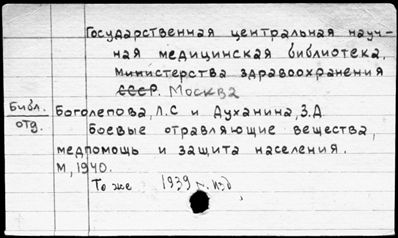 Государственная центральная науч-
ная медицинская библиотека.
Министерства здравоохранения
СССР. Москва
Библ.
отд.
Боголепова, Л.С и Духанина, З.Д.
Боевые отравляющие вещества,
медпомощь и защита населения.
М, 1940.
То же 1939 г. изд